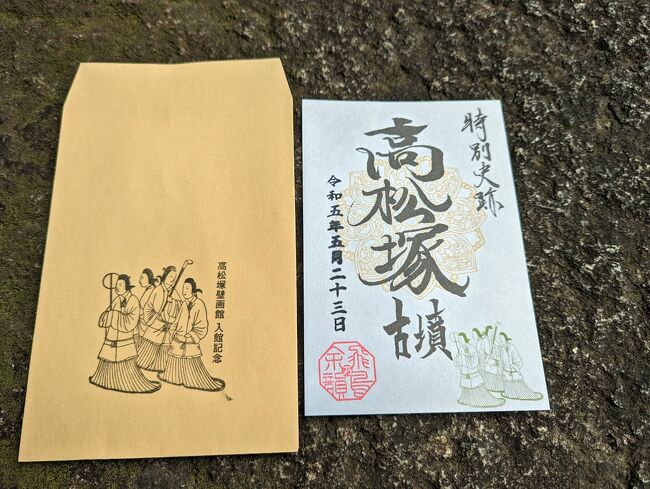 高松塚壁画館 入館記念
特別史跡
高松塚古墳
令和五年五月二十三日